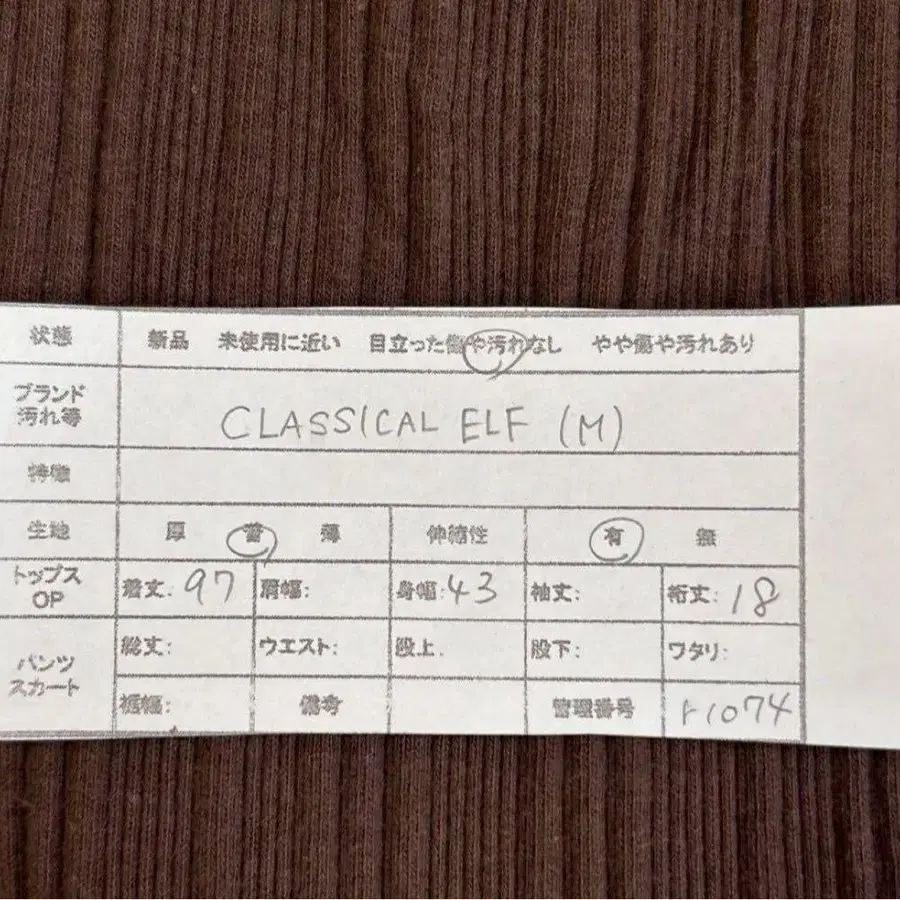 状態 新品 未使用に近い 目立った傷や汚れなし やや傷や汚れあり
ブランド
汚れ等
CLASSICAL ELF (M)
特徴
生地 厚 普 薄 伸縮性 有 無
トップス
OP
着丈: 97 肩幅: 身幅: 43 袖丈: 裄丈: 18
パンツ
スカート
総丈: ウエスト: 股上: 股下: ワタリ:
裾幅: 備考 管理番号 1074